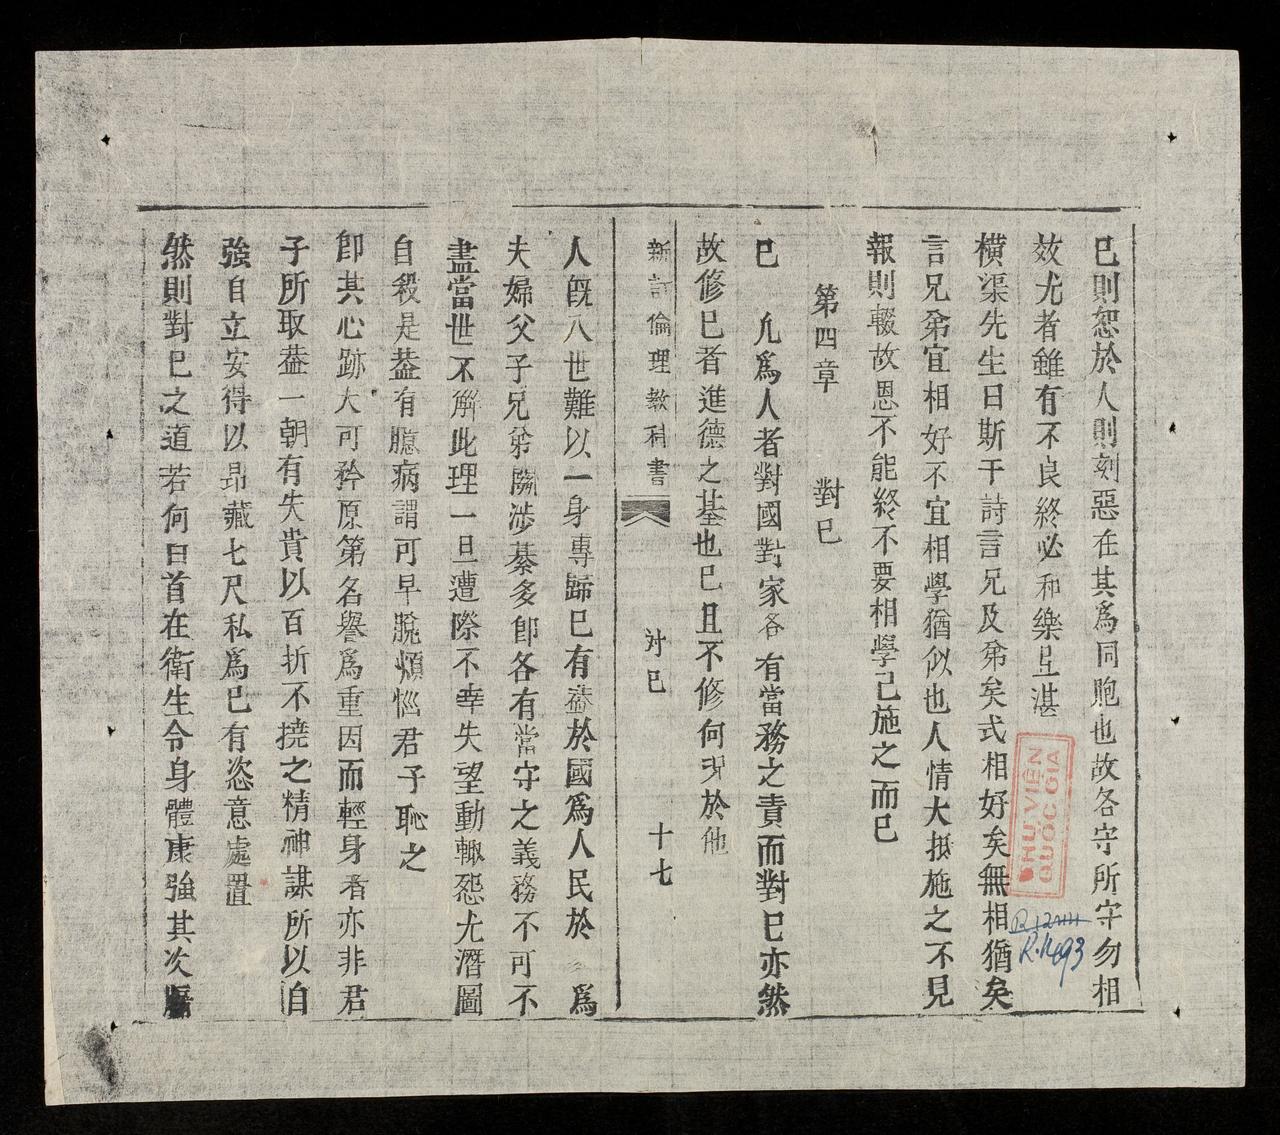 己則恕於人則刻惡在其爲同胞也故各守所守勿相
效尤者雖有不良終必和樂且湛
橫渠先生曰斯干詩言兄及弟矣式相好矣無相猶矣
言兄弟宜相好不宜相學猶似也人情大抵施之不見
報則輟故恩不能終不要相學己施之而已
第四章 對己
己 凡爲人者對國對家各有當務之責而對己亦然
故修己者進德之基也己且不修何況於他
新訂倫理教科書 対己 十七
人既入世難以一身專歸己有蓋於國爲人民於 爲
夫婦父子兄弟關涉綦多卽各有當守之義務不可不
盡當世不解此理一旦遭際不幸失望動輙怨尤潛圖
自殺是葢有臆病謂可早脫煩惱君子恥之
卽其心跡大可矜原第名譽爲重因而輕身者亦非君
子所取葢一朝有失貴以百折不撓之精神謀所以自
強自立安得以昻藏七尺私爲己有恣意處置
然則對己之道若何曰首在衛生令身體康強其次
THƯ VIỆN
QUỐC GIA
R.1493